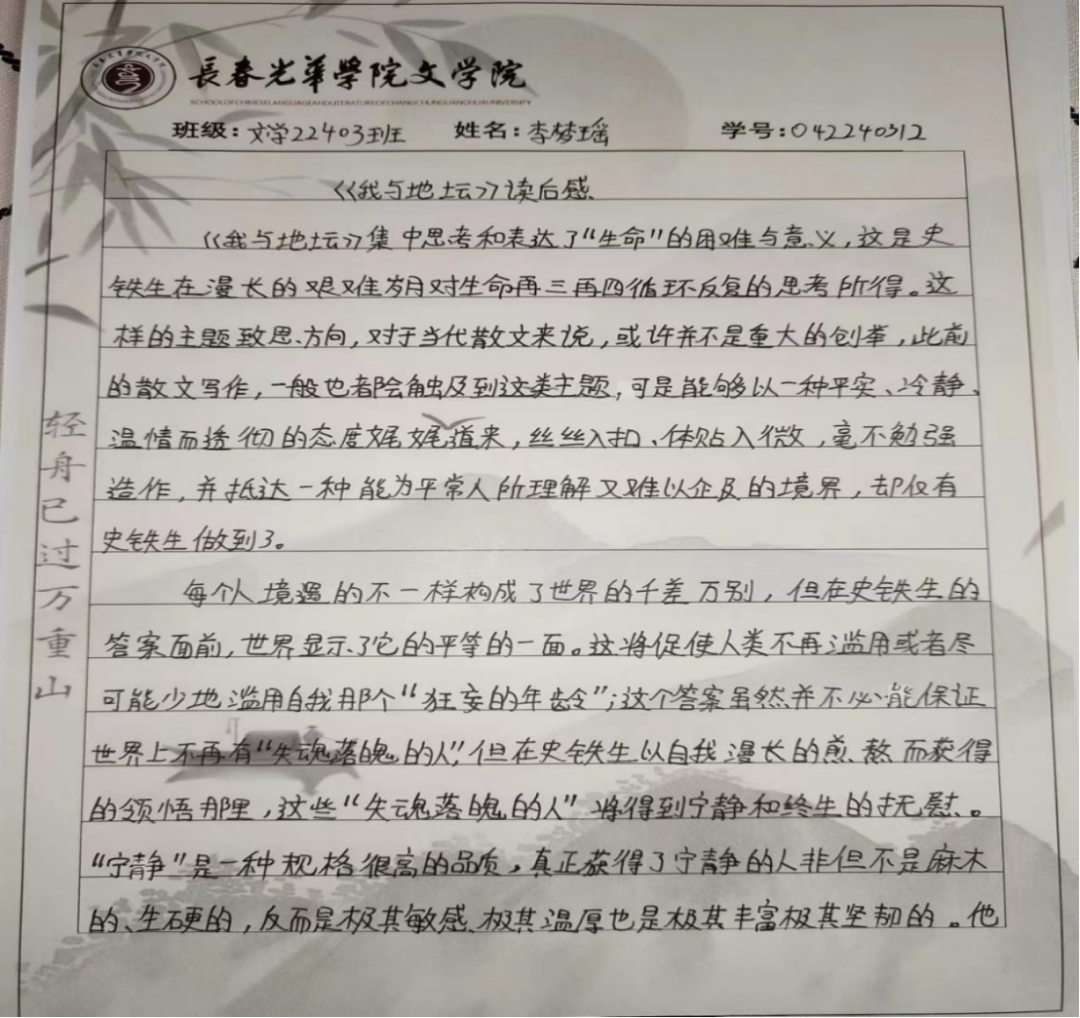 長春光華學院文学院
SCHOOL OF CHINESE LANGUAGE AND LITERATURE OF CHANGCHUN GUANGHUA UNIVERSITY
班级:文学22403班 姓名:李梦瑶 学号:042240312
《我与地坛》读后感
《我与地坛》集中思考和表达了“生命”的困难与意义,这是史
铁生在漫长的艰难岁月对生命再三再四循环反复的思考所得。这
样的主题致思方向,对于当代散文来说,或许并不是重大的创举,此前
的散文写作,一般也都会触及到这类主题,可是能够以一种平实、冷静、
温情而透彻的态度娓娓道来,丝丝入扣、体贴入微,毫不勉强
造作,并抵达一种能为平常人所理解又难以企及的境界,却仅有
史铁生做到了。
每个人境遇的不一样构成了世界的千差万别,但在史铁生的
答案面前,世界显示了它的平等的一面。这将促使人类不再滥用或者尽
可能少地滥用自我那个“狂妄的年龄”;这个答案虽然并不必能保证
世界上不再有“失魂落魄的人”,但在史铁生以自我漫长的煎熬而获得
的领悟那里,这些“失魂落魄的人”将得到宁静和终生的抚慰。
“宁静”是一种规格很高的品质,真正获得了宁静的人非但不是麻木
的、生硬的,反而是极其敏感、极其温厚也是极其丰富极其坚韧的。他
轻舟已过万重山